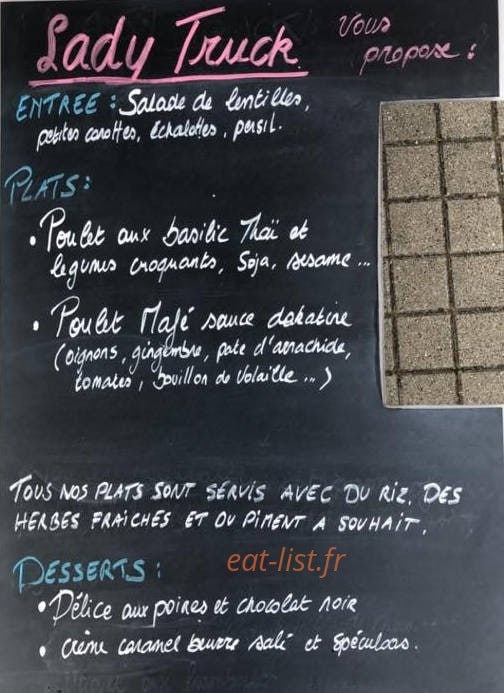 Lady Truck Vous
propose :
ENTREE : Salade de lentilles,
petites carottes, échalottes, persil.
PLATS :
• Poulet aux basilic Thaï et
légumes croquants, Soja, sesame ...
• Poulet Mafé sauce dakatine
(oignons, gingembre, pate d'arrachide,
tomates, bouillon de Volaille ...)
TOUS NOS PLATS SONT SERVIS AVEC DU RIZ. DES
HERBES FRAICHES ET DU PIMENT A SOUHAIT.
eat-list.fr
DESSERTS :
• Délice aux poires et chocolat noir
• crème caramel beurre salé et spéculoos.